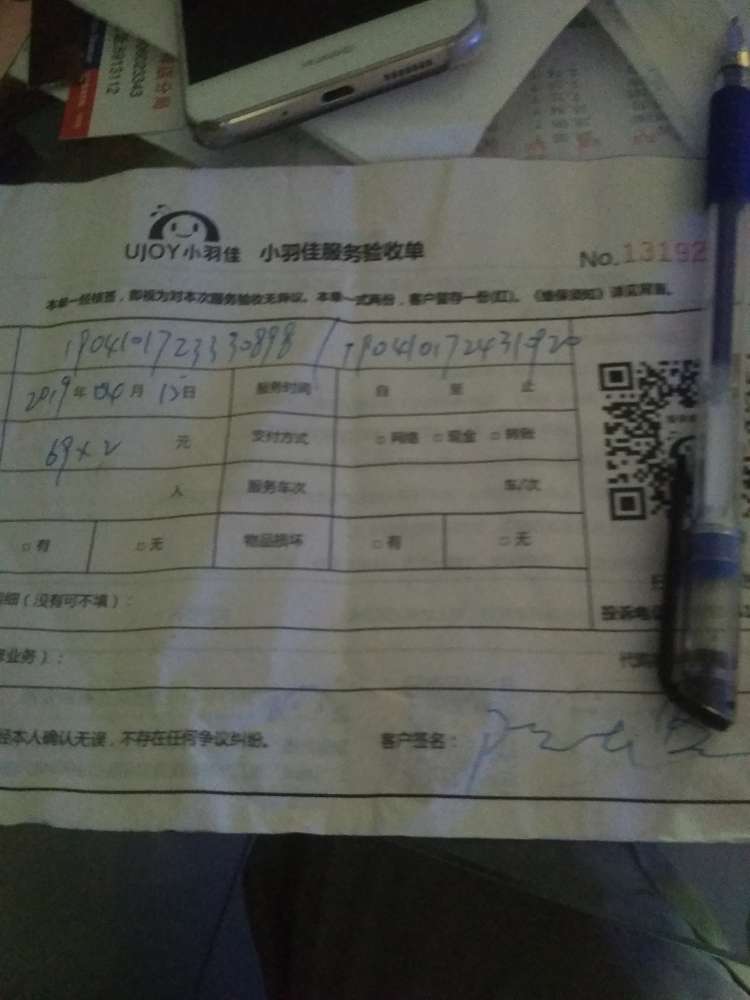 UJOY小羽佳 小羽佳服务验收单 No.13192
本单一经核签，即视为对本次服务验收无异议。本单一式两份，客户留存一份(红)。《维保须知》详见背面。
1904101723330898 / 1904101724310920
2019年04月12日 服务时间 自 至 止
69×2 元 支付方式 □网络 □现金 □转账
人 服务车次 车/次
□有 □无 物品损坏 □有 □无
细（没有可不填）：
投诉电
业务）：
经本人确认无误，不存在任何争议纠纷。 客户签名：